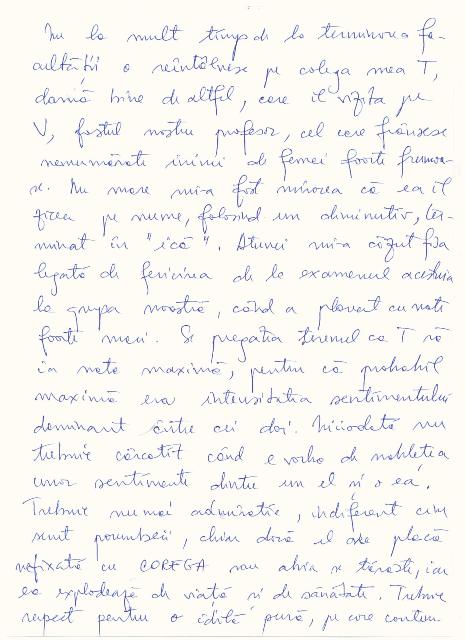 Nu la mult timp de la terminarea fa-
cultății o reîntâlnise pe colega mea T,
damă bine de altfel, care îl vizita pe
V, fostul nostru profesor, cel care frânsese
nenumărate inimi de femei foarte frumoa-
se. Nu mare mi-a fost mirarea că ea îl
zicea pe nume, folosind un diminutiv, ter-
minat în "ică". Atunci mi-a căzut fisa
legată de fericirea de la examenul acestuia
la grupa noastră, când a plouat cu note
foarte mari. Se pregătea terenul ca T să
ia nota maximă, pentru că probabil
maximă era intensitatea sentimentului
dominant între cei doi. Niciodată nu
trebuie cârcotit când e vorba de noblețea
unor sentimente dintre un el și o ea.
Trebuie numai admirație, indiferent cum
sunt porumbeii, chiar dacă el are placă
nefixată cu COREGA sau abia se târăște, iar
ea explodează de viață și de sănătate. Trebuie
respect pentru o idilă pură, pe care contem-